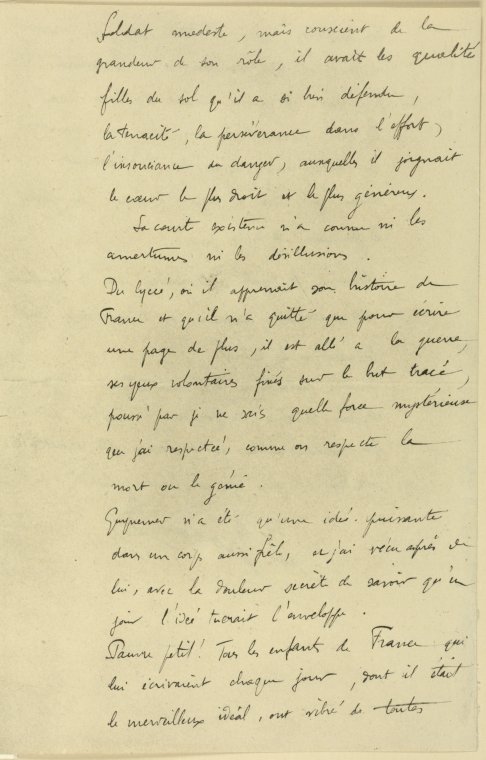 Soldat modeste, mais conscient de la
grandeur de son rôle, il avait les qualités
filles du sol qu'il a si bien défendu,
la tenacité, la persévérance dans l'effort,
l'insouciance du danger, auxquelles il joignait
le cœur le plus droit et le plus généreux.
Sa courte existence n'a connu ni les
amertumes ni les désillusions.
Du lycée, où il apprenait son histoire de
France et qu'il n'a quitté que pour écrire
une page de plus, il est allé à la guerre,
ses yeux volontaires fixés sur le but tracé,
poussé par je ne sais quelle force mystérieuse
que j'ai respectée, comme on respecte la
mort ou le génie.
Guynemer n'a été qu'une idée puissante
dans un corps aussi frêle, et j'ai vécu auprès de
lui, avec la douleur secrète de savoir qu'un
jour l'idée tuerait l'enveloppe.
Pauvre petit! Tous les enfants de France qui
lui écrivaient chaque jour, dont il était
le merveilleux idéal, ont vibré de toutes